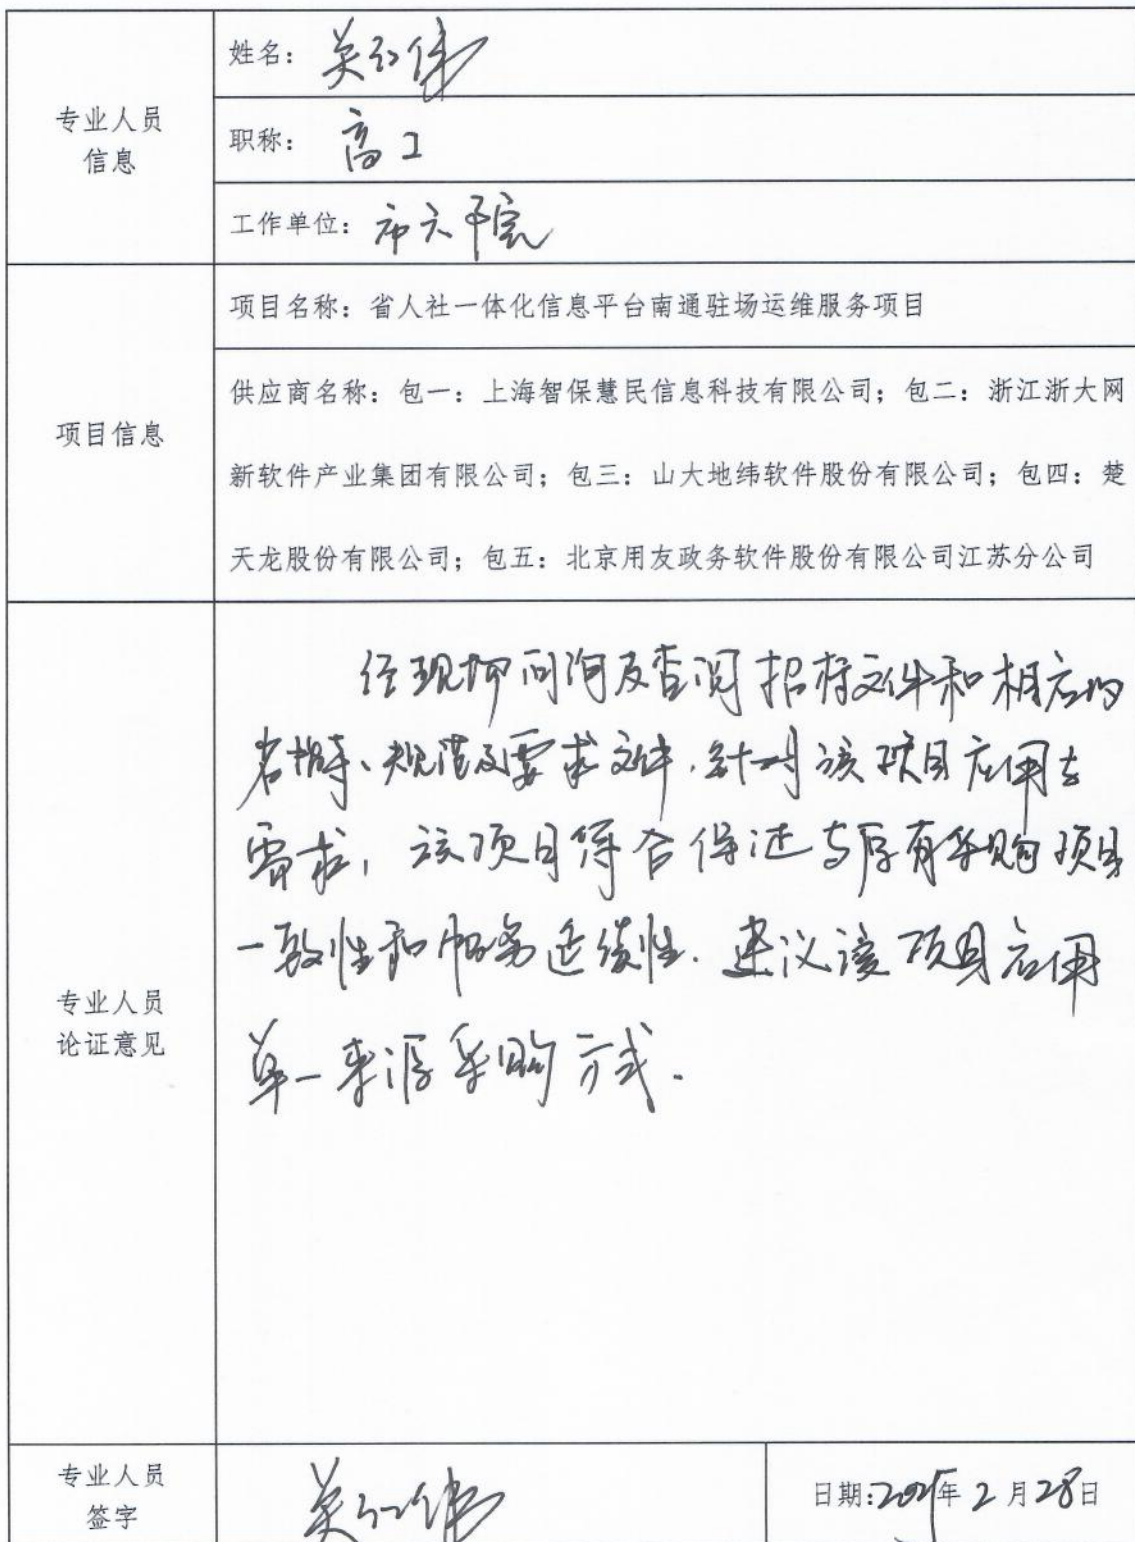 专业人员
信息
姓名：吴红伟
职称：高工
工作单位：市六干院
项目信息
项目名称：省人社一体化信息平台南通驻场运维服务项目
供应商名称：包一：上海智保慧民信息科技有限公司；包二：浙江浙大网
新软件产业集团有限公司；包三：山大地纬软件股份有限公司；包四：楚
天龙股份有限公司；包五：北京用友政务软件股份有限公司江苏分公司
专业人员
论证意见
经现场问询及查阅招标文件和相应的
规范及要求文件，针对该项目应用
需求，该项目符合保证与原有采购项目
一致性和服务延续性。建议该项目应用
单一来源采购方式．
专业人员
签字
日期：2025年2月28日